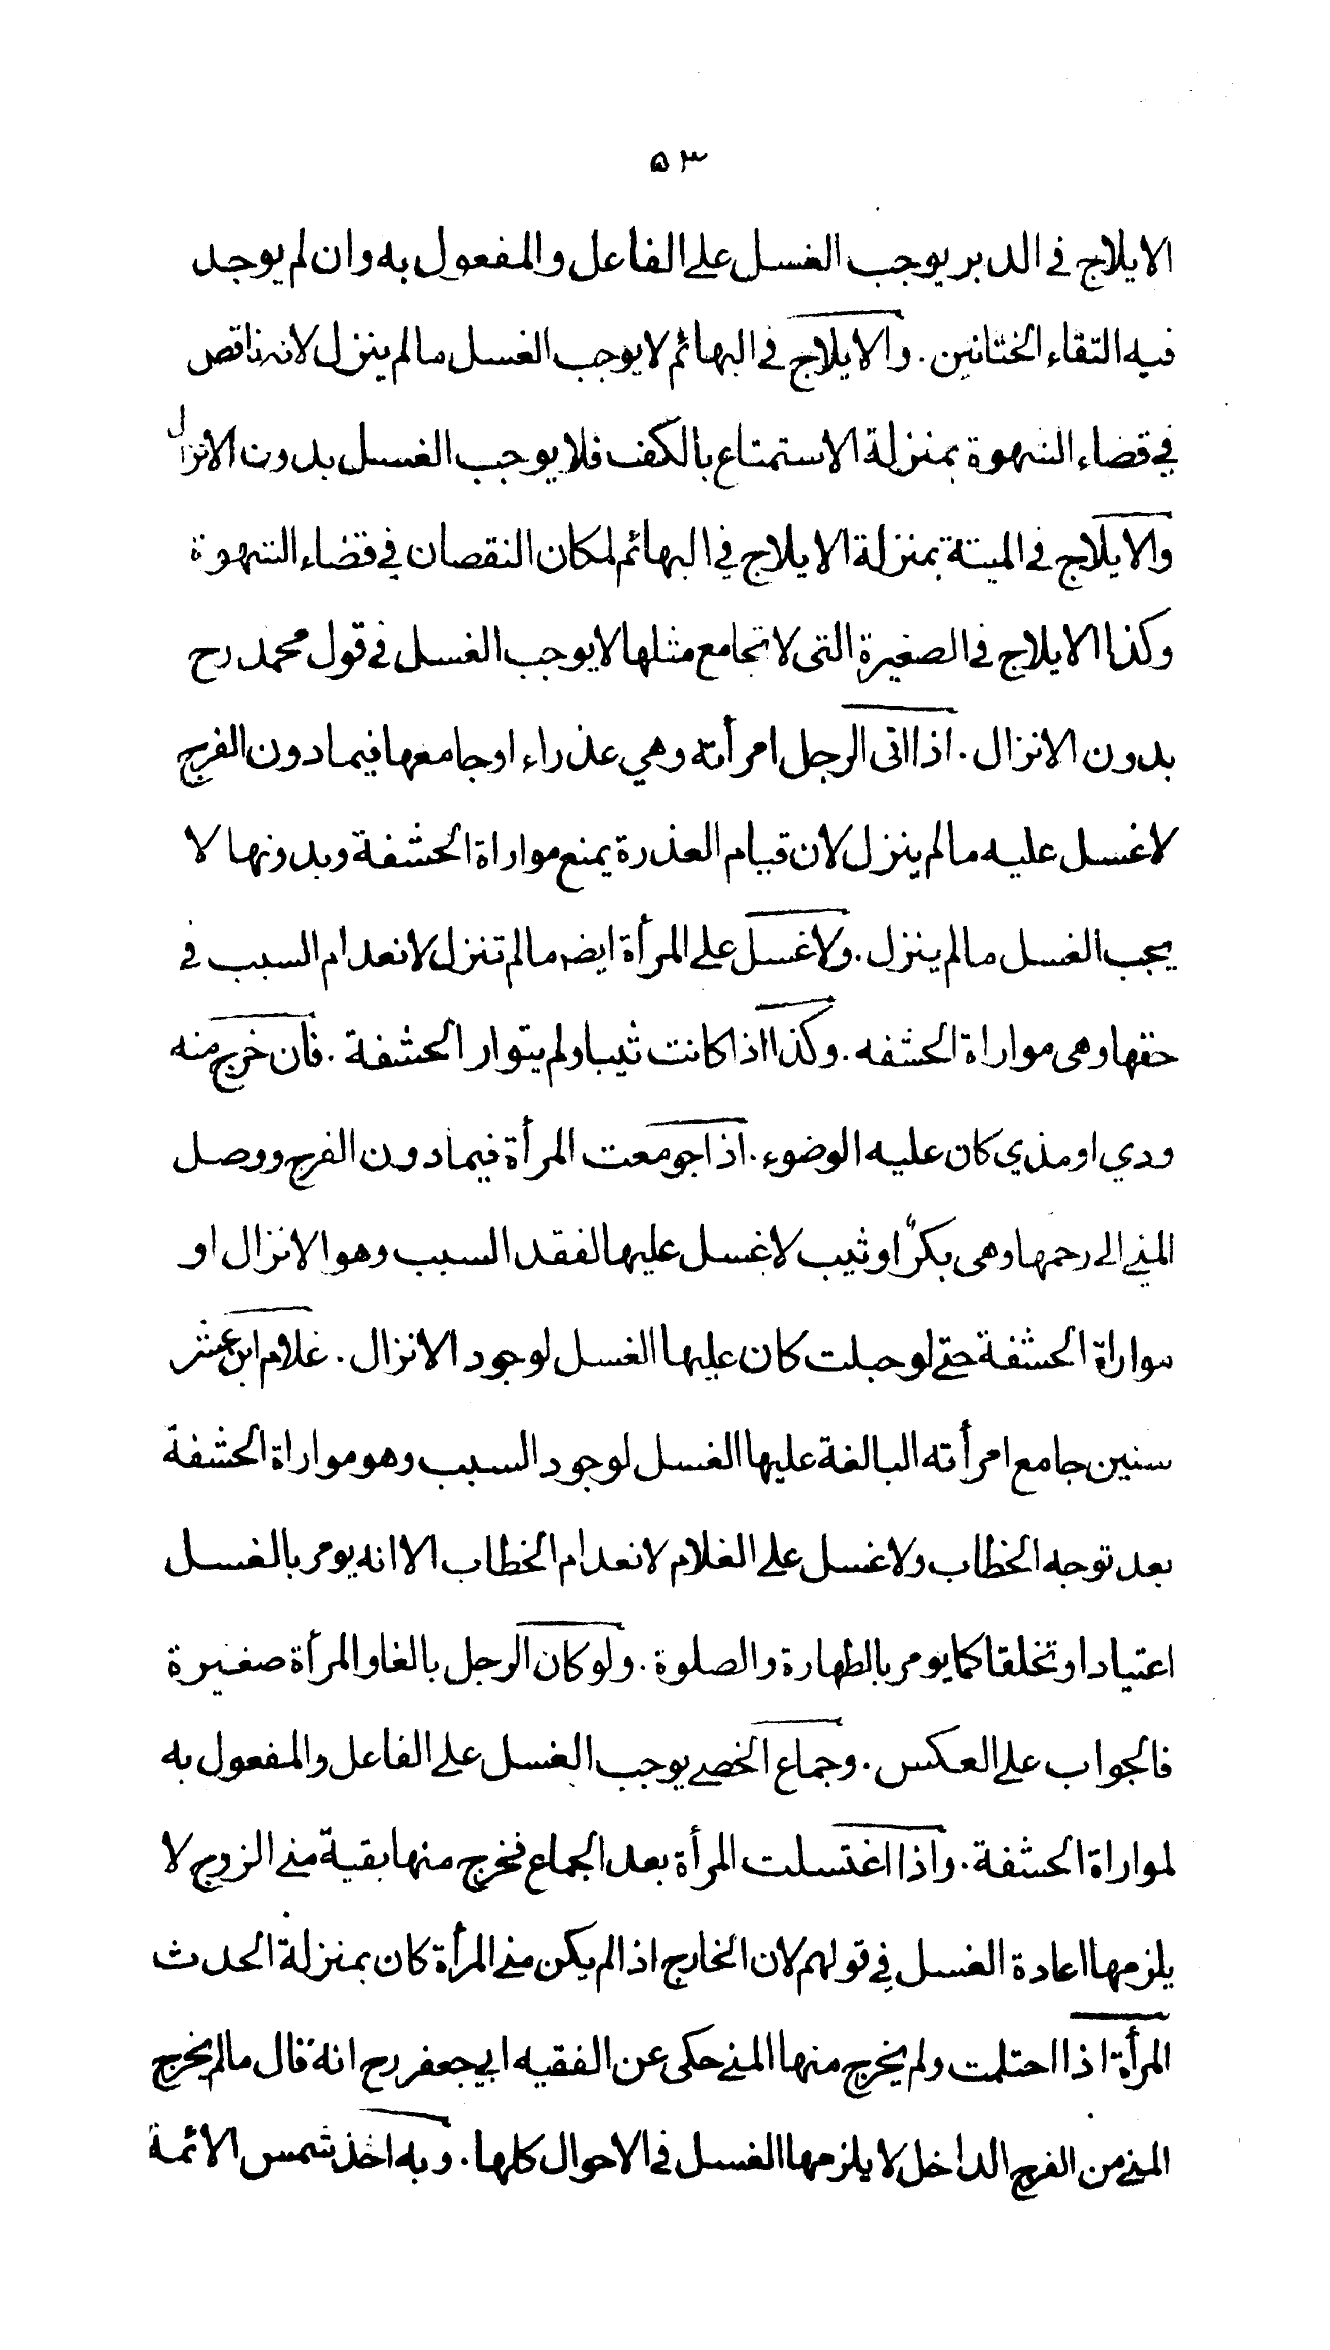 ۵۳
الايلاج في الدبر يوجب الغسل على الفاعل والمفعول به وان لم يوجد
فيه التقاء الختانين . والايلاج في البهائم لا يوجب الغسل ما لم ينزل لانه ناقص
في قضاء الشهوة بمنزلة الاستمتاع بالكف فلا يوجب الغسل بدون الانزال
والايلاج في الميتة بمنزلة الايلاج في البهائم لمكان النقصان في قضاء الشهوة
وكذا الايلاج في الصغيرة التى لا تجامع مثلها لا يوجب الغسل في قول محمد رح
بدون الانزال . اذا اتى الرجل امرأته وهي عذراء او جامعها فيما دون الفرج
لا غسل عليه ما لم ينزل لان قيام العذرة يمنع مواراة الحشفة وبدونها لا
يجب الغسل ما لم ينزل . ولا غسل على المرأة ايضه ما لم تنزل لانعدام السبب في
حقها وهى مواراة الحشفه . وكذا اذا كانت ثيبا ولم يتوار الحشفة . فان خرج منه
ودي او مذي كان عليه الوضوء . اذا جومعت المرأة فيما دون الفرج ووصل
المني الى رحمها وهى بكرٌ او ثيب لا غسل عليها لفقد السبب وهو الانزال او
مواراة الحشفة حتى لو حبلت كان عليها الغسل لوجود الانزال . غلام ابن عشر
سنين جامع امرأته البالغة عليها الغسل لوجود السبب وهو مواراة الحشفة
بعد توجه الخطاب ولا غسل على الغلام لانعدام الخطاب الا انه يومر بالغسل
اعتيادا وتخلقا كما يومر بالطهارة والصلوة . ولو كان الرجل بالغا والمرأة صغيرة
فالجواب على العكس . وجماع الخصي يوجب الغسل على الفاعل والمفعول به
لمواراة الحشفة . واذا اغتسلت المرأة بعد الجماع فخرج منها بقية مني الزوج لا
يلزمها اعادة الغسل في قولهم لان الخارج اذا لم يكن مني المرأة كان بمنزلة الحدث
المرأة اذا احتلمت ولم يخرج منها المني حكى عن الفقيه ابي جعفر رح انه قال ما لم يخرج
المني من الفرج الداخل لا يلزمها الغسل في الاحوال كلها . وبه اخذ شمس الائمة